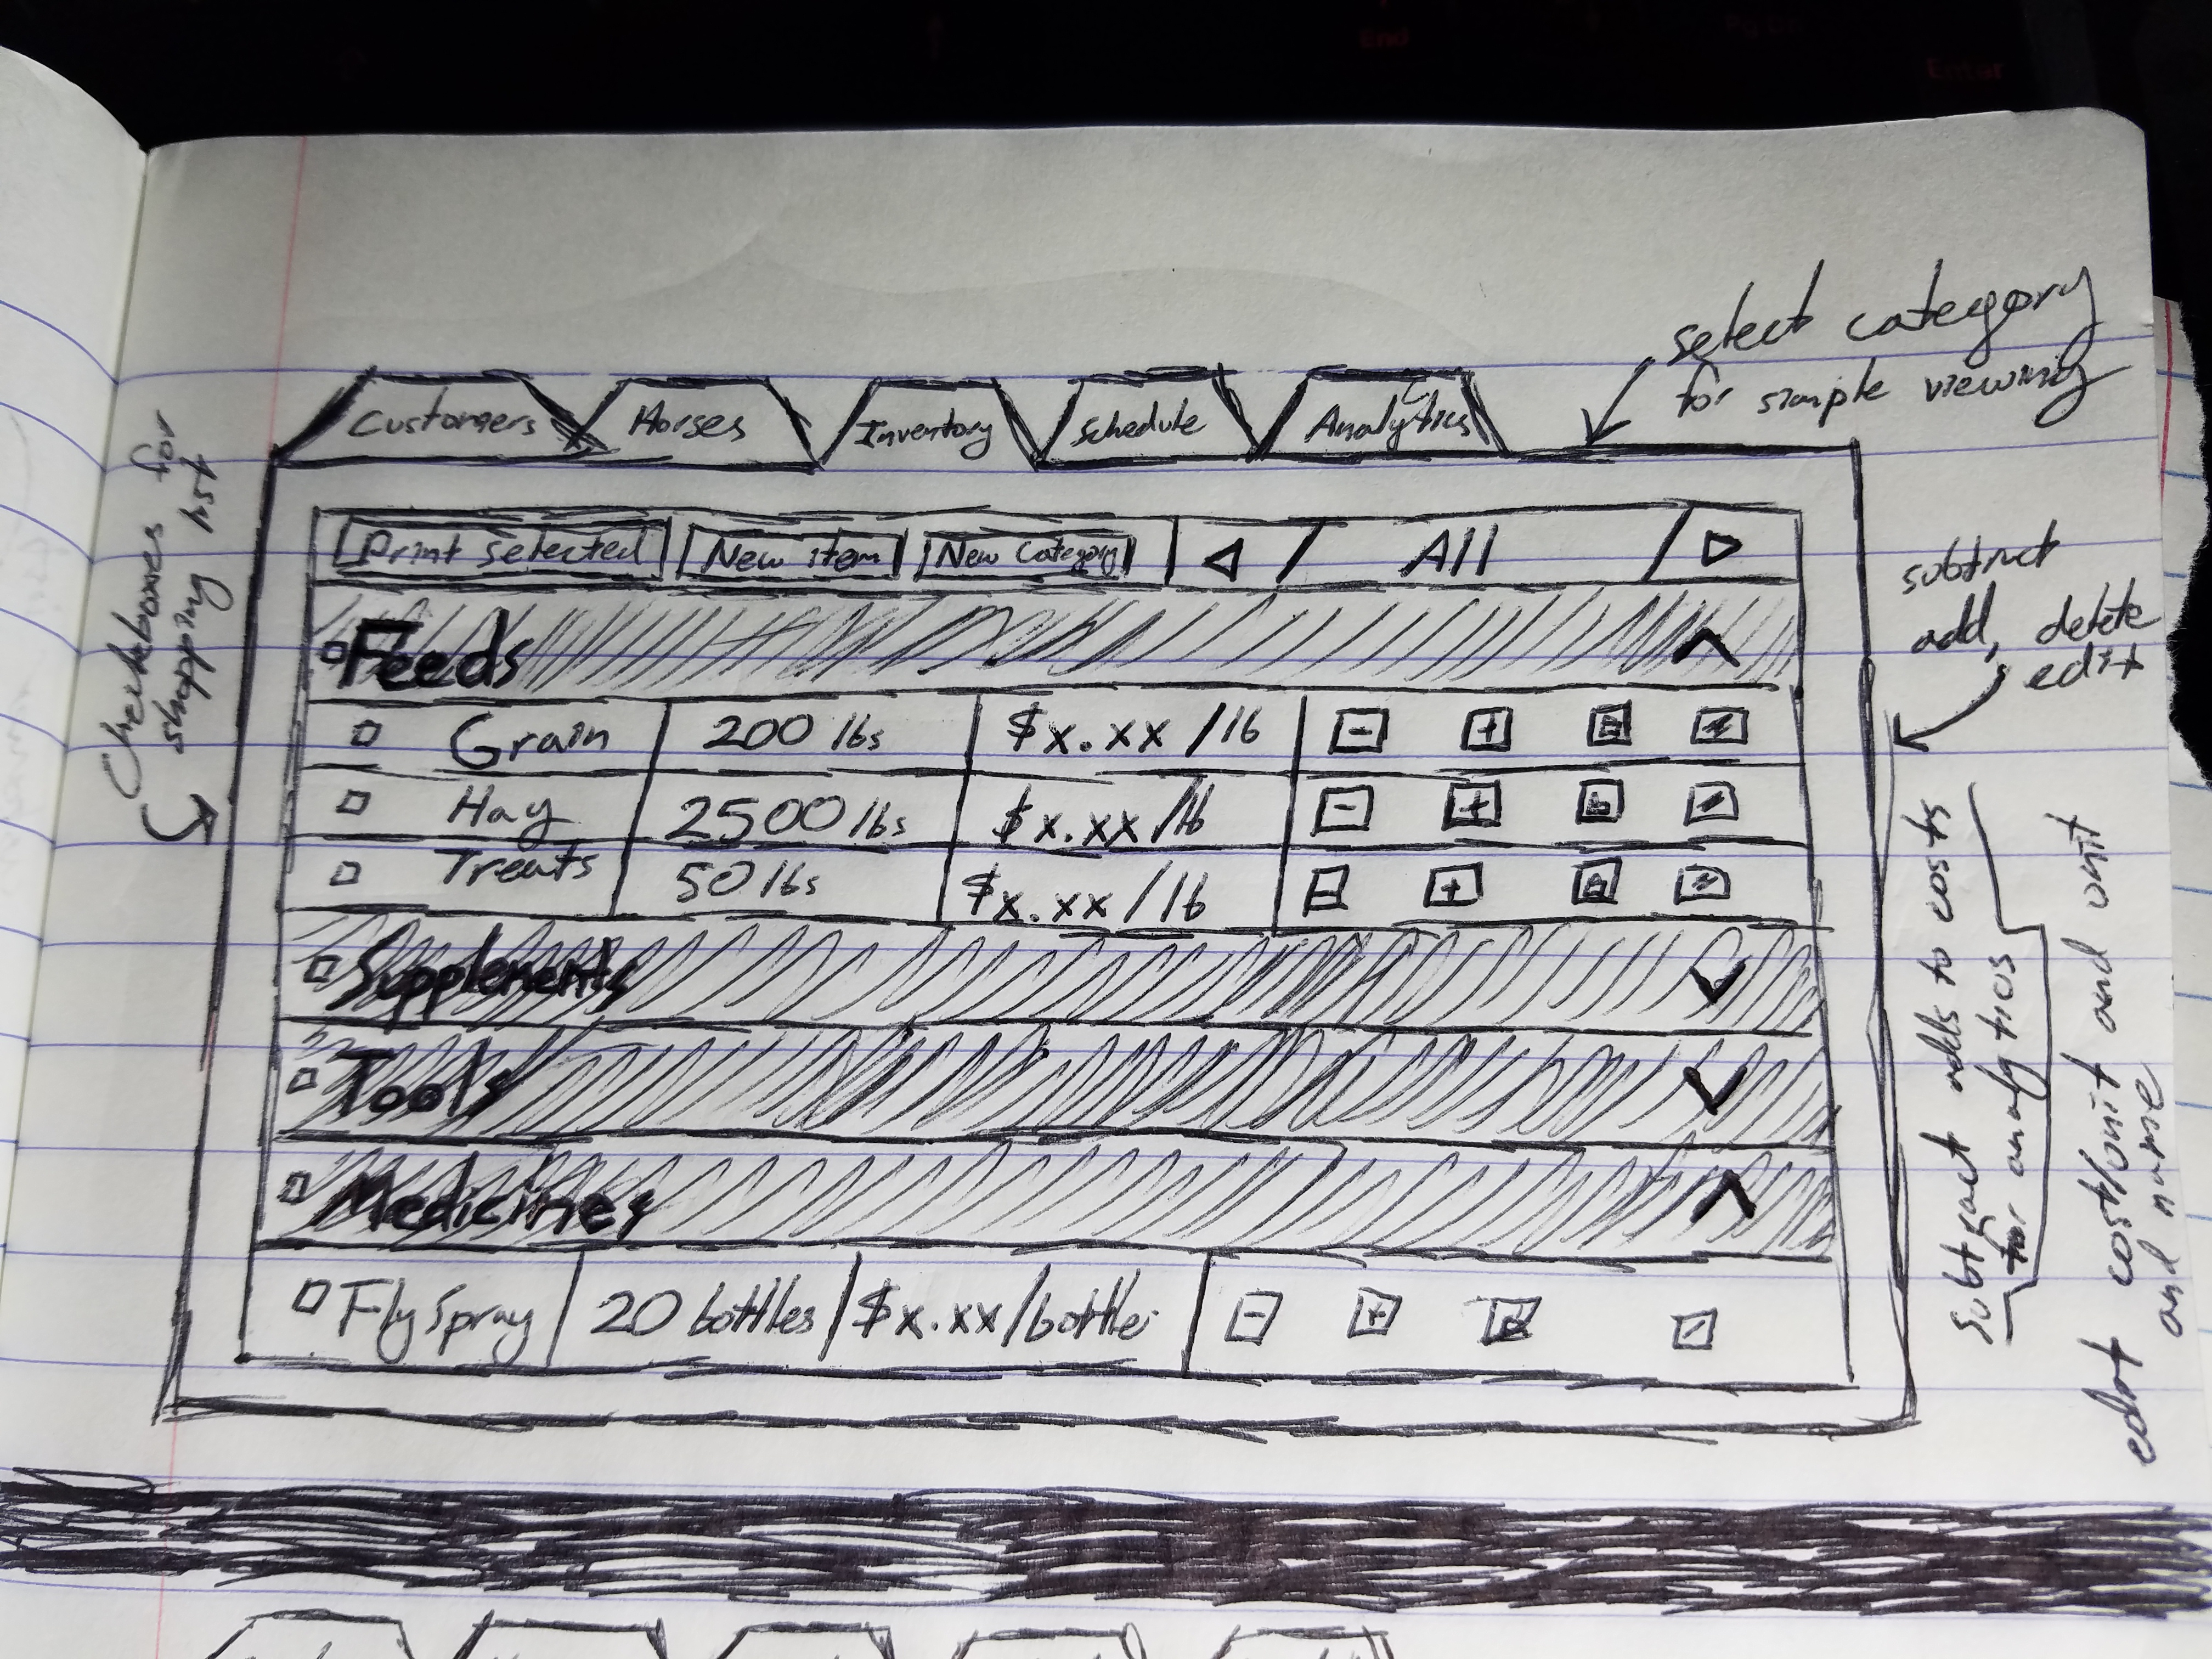 End
Pg Dn
Enter
select category
for simple viewing
Customers
Horses
Inventory
Schedule
Analytics
Checkboxes for
shopping list
Print selected
New item
New Category
All
subtract
add, delete
edit
Feeds
Grain 200 lbs $x.xx /lb - +
Hay 2500 lbs $x.xx /lb - +
Treats 50 lbs $x.xx /lb - +
Supplements
Tools
Medicines
Fly Spray 20 bottles $x.xx/bottle - +
Subtract adds to costs
for analytics
edit cost/unit and unit
and name